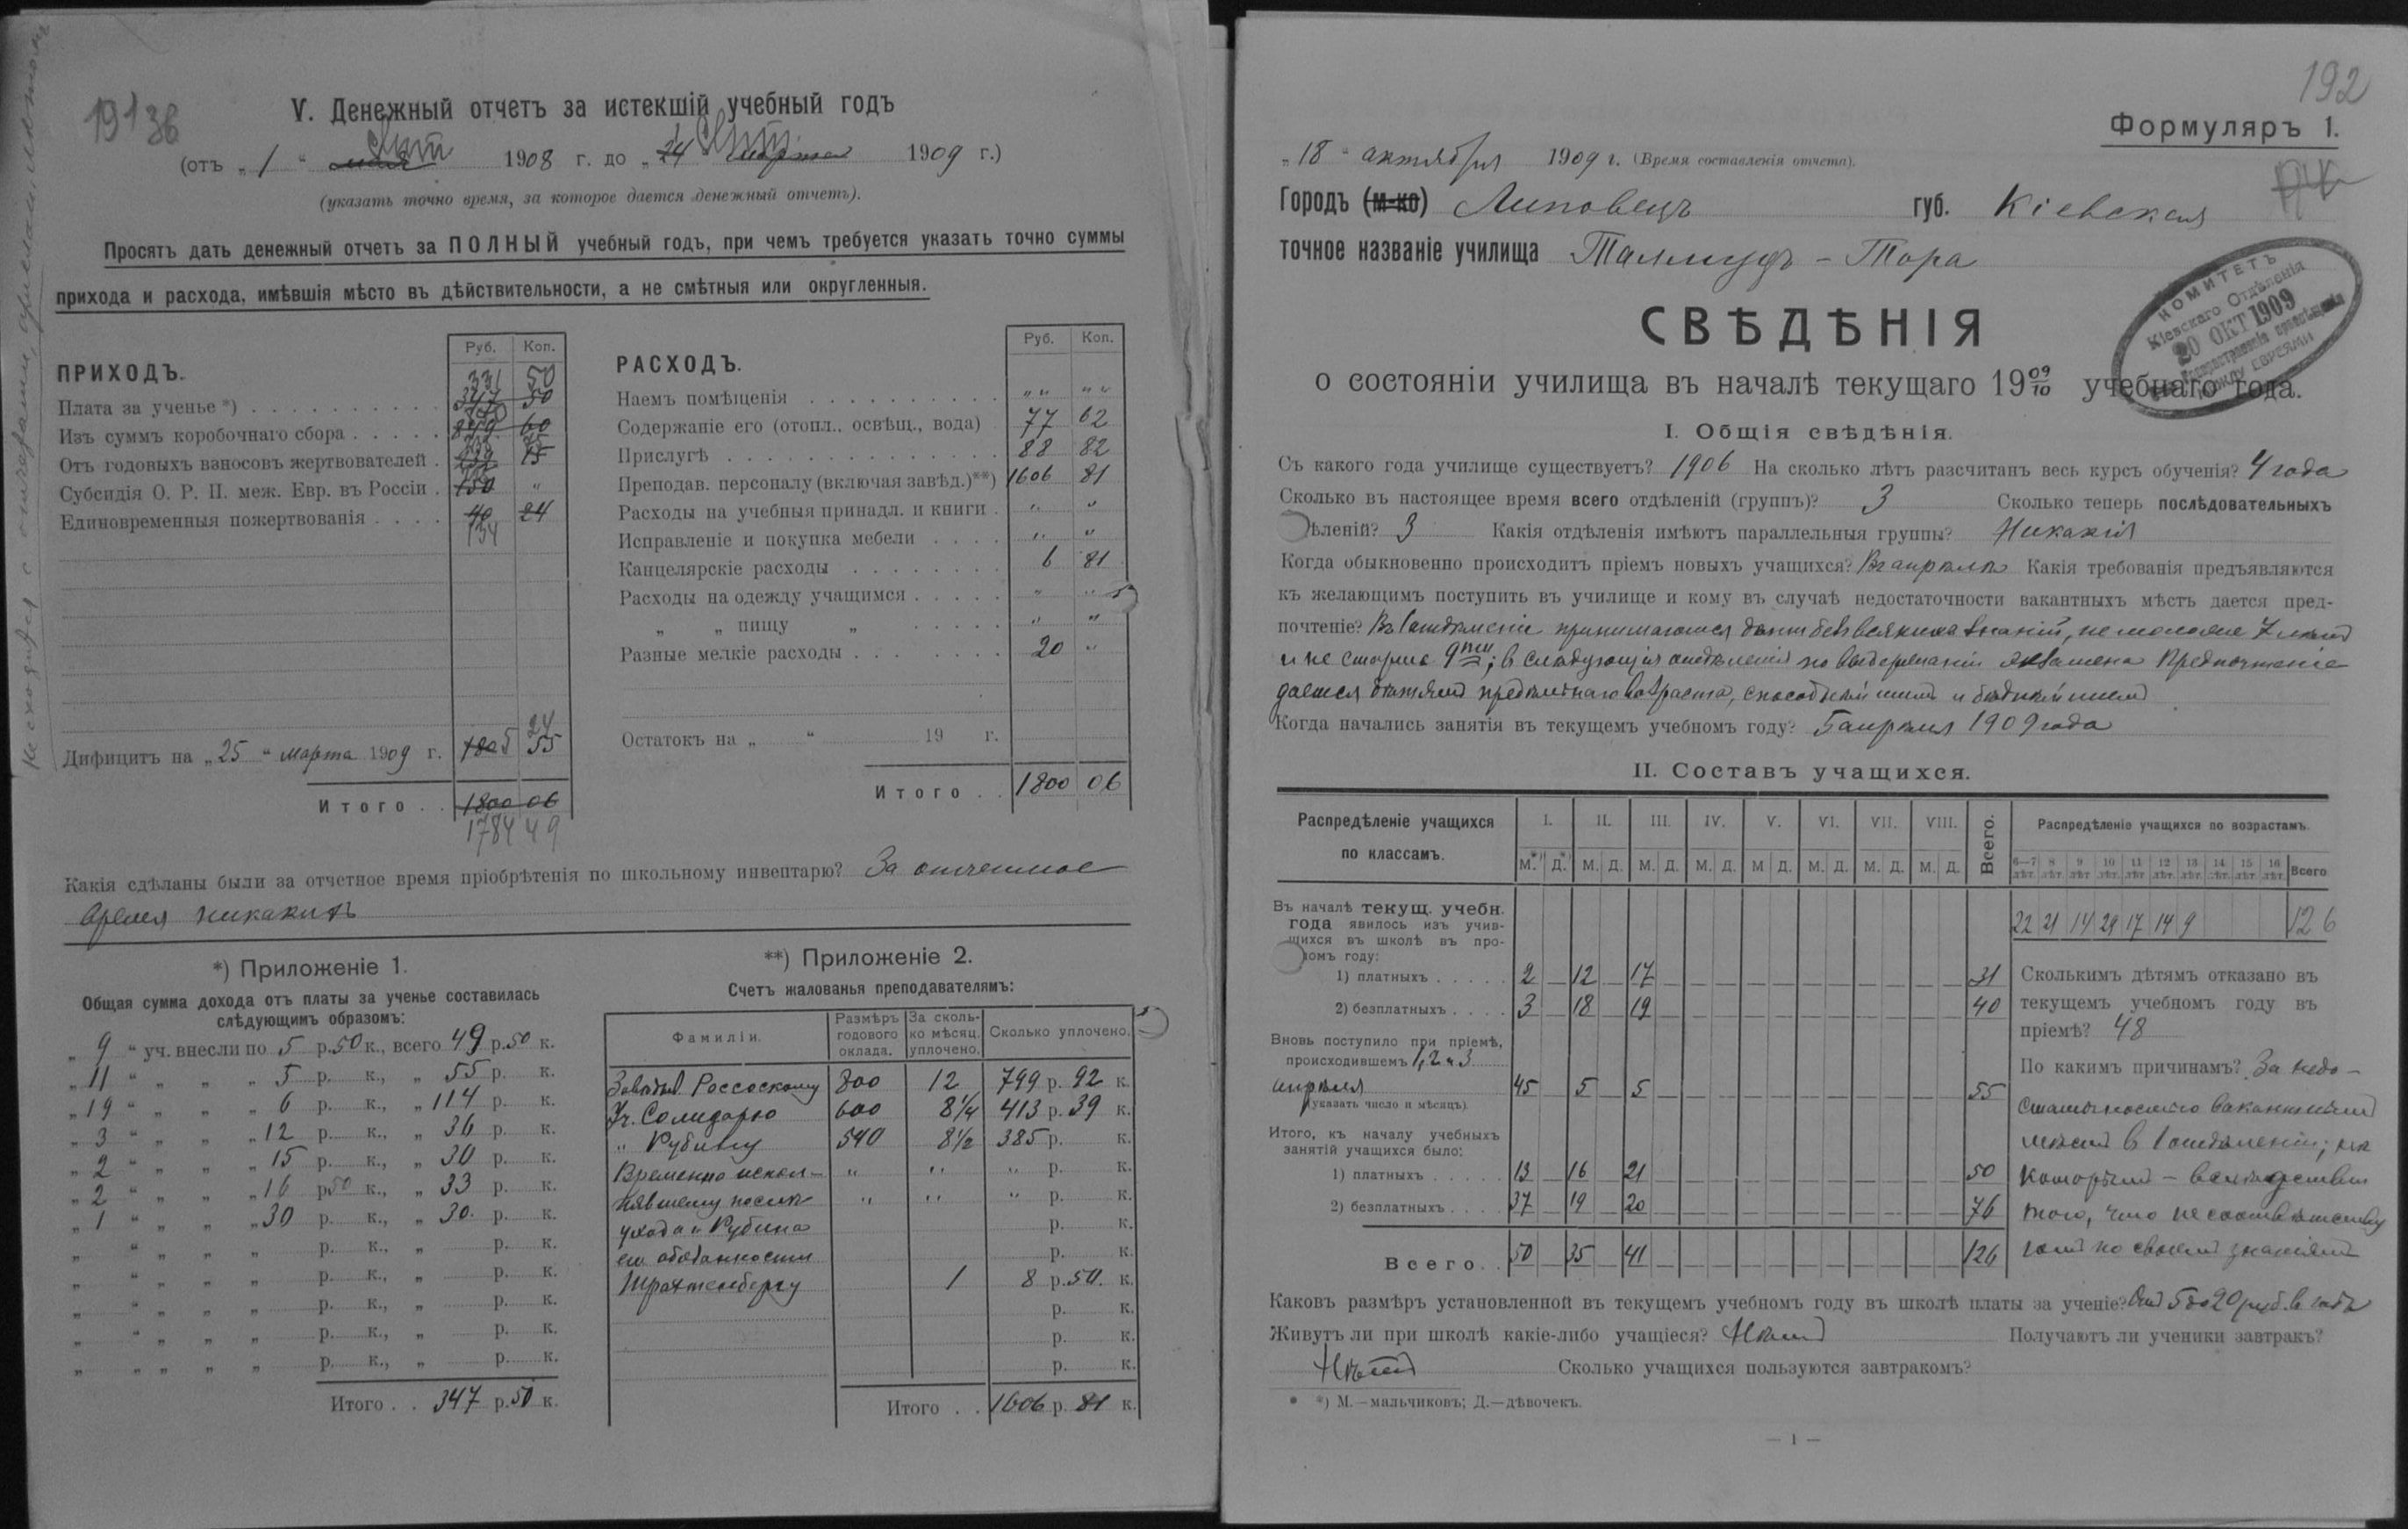 191 об
V. Денежный отчетъ за истекшій учебный годъ
(отъ „ 1 “ мая 1908 г. до „ 24 “ марта 1909 г.)
(указать точно время, за которое дается денежный отчетъ).
Просятъ дать денежный отчетъ за ПОЛНЫЙ учебный годъ, при чемъ требуется указать точно суммы
прихода и расхода, имѣвшія мѣсто въ дѣйствительности, а не смѣтныя или округленныя.
ПРИХОДЪ. Руб. Коп.
331 50
Плата за ученье *) 347 50
Изъ суммъ коробочнаго сбора 60
Отъ годовыхъ взносовъ жертвователей 75
Субсидія О. Р. П. меж. Евр. въ Россіи 150 „
Единовременныя пожертвованія 40 24
134
24
Дифицитъ на „ 25 “ марта 1909 г. 55
Итого 1800 06
1784 49
РАСХОДЪ. Руб. Коп.
Наемъ помѣщенія „ „ „ „
Содержаніе его (отопл., освѣщ., вода) 77 62
Прислугѣ 88 82
Преподав. персоналу (включая завѣд.) **) 1606 81
Расходы на учебныя принадл. и книги „ „
Исправленіе и покупка мебели „ „
Канцелярскіе расходы 6 81
Расходы на одежду учащимся „ „
„ „ пищу „ „ „
Разные мелкіе расходы 20 „
Остатокъ на „ “ 19 г.
Итого 1800 06
Какія сдѣланы были за отчетное время пріобрѣтенія по школьному инвентарю? За отчетное
время никакихъ
*) Приложеніе 1.
Общая сумма дохода отъ платы за ученье составилась
слѣдующимъ образомъ:
„ 9 “ уч. внесли по 5 р. 50 к., всего 49 р. 50 к.
„ 11 “ „ „ „ 5 р. к., „ 55 р. к.
„ 19 “ „ „ „ 6 р. к., „ 114 р. к.
„ 3 “ „ „ „ 12 р. к., „ 36 р. к.
„ 2 “ „ „ „ 15 р. к., „ 30 р. к.
„ 2 “ „ „ „ 16 р. 50 к., „ 33 р. к.
„ 1 “ „ „ „ 30 р. к., „ 30 р. к.
„ “ „ „ „ р. к., „ р. к.
„ “ „ „ „ р. к., „ р. к.
„ “ „ „ „ р. к., „ р. к.
„ “ „ „ „ р. к., „ р. к.
„ “ „ „ „ р. к., „ р. к.
Итого 347 р. 50 к.
**) Приложеніе 2.
Счетъ жалованья преподавателямъ:
Фамиліи. Размѣръ годового оклада. За сколько мѣсяц. уплочено. Сколько уплочено.
Завѣдыв. Россоскому 800 12 799 р. 92 к.
Уч. Солидарю 600 8 1/4 413 р. 39 к.
„ Рубину 540 8 1/2 385 р. к.
Временно испол- „ „ „ р. к.
нявшему послѣ „ „ „ р. к.
ухода Рубина р. к.
его обязанности р. к.
Трахтенбергу 1 8 р. 50 к.
р. к.
р. к.
р. к.
Итого 1606 р. 81 к.
192
Формуляръ 1.
„ 18 “ октября 1909 г. (Время составленія отчета).
Городъ (м-ко) Липовецъ губ. Кіевская
точное названіе училища Талмудъ-Тора
КОМИТЕТЪ
Кіевскаго Отдѣленія
20 ОКТ 1909
распространенія просвѣщенія
МЕЖДУ ЕВРЕЯМИ
СВѢДѢНІЯ
о состояніи училища въ началѣ текущаго 19 09/10 учебнаго года.
I. Общія свѣдѣнія.
Съ какого года училище существуетъ? 1906 На сколько лѣтъ разсчитанъ весь курсъ обученія? 4 года
Сколько въ настоящее время всего отдѣленій (группъ)? 3 Сколько теперь послѣдовательныхъ
ѣленій? 3 Какія отдѣленія имѣютъ параллельныя группы? Никакія
Когда обыкновенно происходитъ пріемъ новыхъ учащихся? Въ апрѣлѣ Какія требованія предъявляются
къ желающимъ поступить въ училище и кому въ случаѣ недостаточности вакантныхъ мѣстъ дается пред-
почтеніе? Въ I отдѣленіи принимаются дѣти безъ всякихъ знаній, не моложе 7 лѣтъ
и не старше 9ти; в слѣдующія отдѣленія по выдержаніи экзамена Предпочтеніе
дается дѣтямъ предѣльнаго возраста, способнѣйшимъ и бѣднѣйшимъ
Когда начались занятія въ текущемъ учебномъ году? 5 апрѣля 1909 года
II. Составъ учащихся.
Распредѣленіе учащихся по классамъ. I. II. III. IV. V. VI. VII. VIII. Всего.
М.*) Д.*) М. Д. М. Д. М. Д. М Д. М. Д. М. Д. М. Д.
Въ началѣ текущ. учебн.
года явилось изъ учив-
шихся въ школѣ въ про-
ломъ году:
1) платныхъ 2 — 12 — 17 — 31
2) безплатныхъ 3 — 18 — 19 — 40
Вновь поступило при пріемѣ,
происходившемъ 1, 2 и 3
апрѣля 45 5 5 55
(указать число и мѣсяцъ)
Итого, къ началу учебныхъ
занятій учащихся было:
1) платныхъ 13 — 16 — 21 — 50
2) безплатныхъ 37 — 19 — 20 — 76
Всего 50 — 35 — 41 — 126
Распредѣленіе учащихся по возрастамъ.
6—7 лѣт. 8 лѣт. 9 лѣт 10 лѣт. 11 лѣт 12 лѣт. 13 лѣт. 14 лѣт. 15 лѣт 16 лѣт. Всего
22 21 14 29 17 14 9 126
Сколькимъ дѣтямъ отказано въ
текущемъ учебномъ году въ
пріемѣ? 48
По какимъ причинамъ? За недо-
статочностью вакантныхъ
мѣстъ в I отдѣленіи;
которымъ — вслѣдствіе
того, что не соотвѣтству
ютъ по своимъ знаніямъ
Каковъ размѣръ установленной въ текущемъ учебномъ году въ школѣ платы за ученіе? Отъ 5 до 20 руб. в годъ
Живутъ ли при школѣ какіе-либо учащіеся? Нѣтъ Получаютъ ли ученики завтракъ?
Нѣтъ Сколько учащихся пользуются завтракомъ?
*) М.—мальчиковъ; Д.—дѣвочекъ.
— 1 —